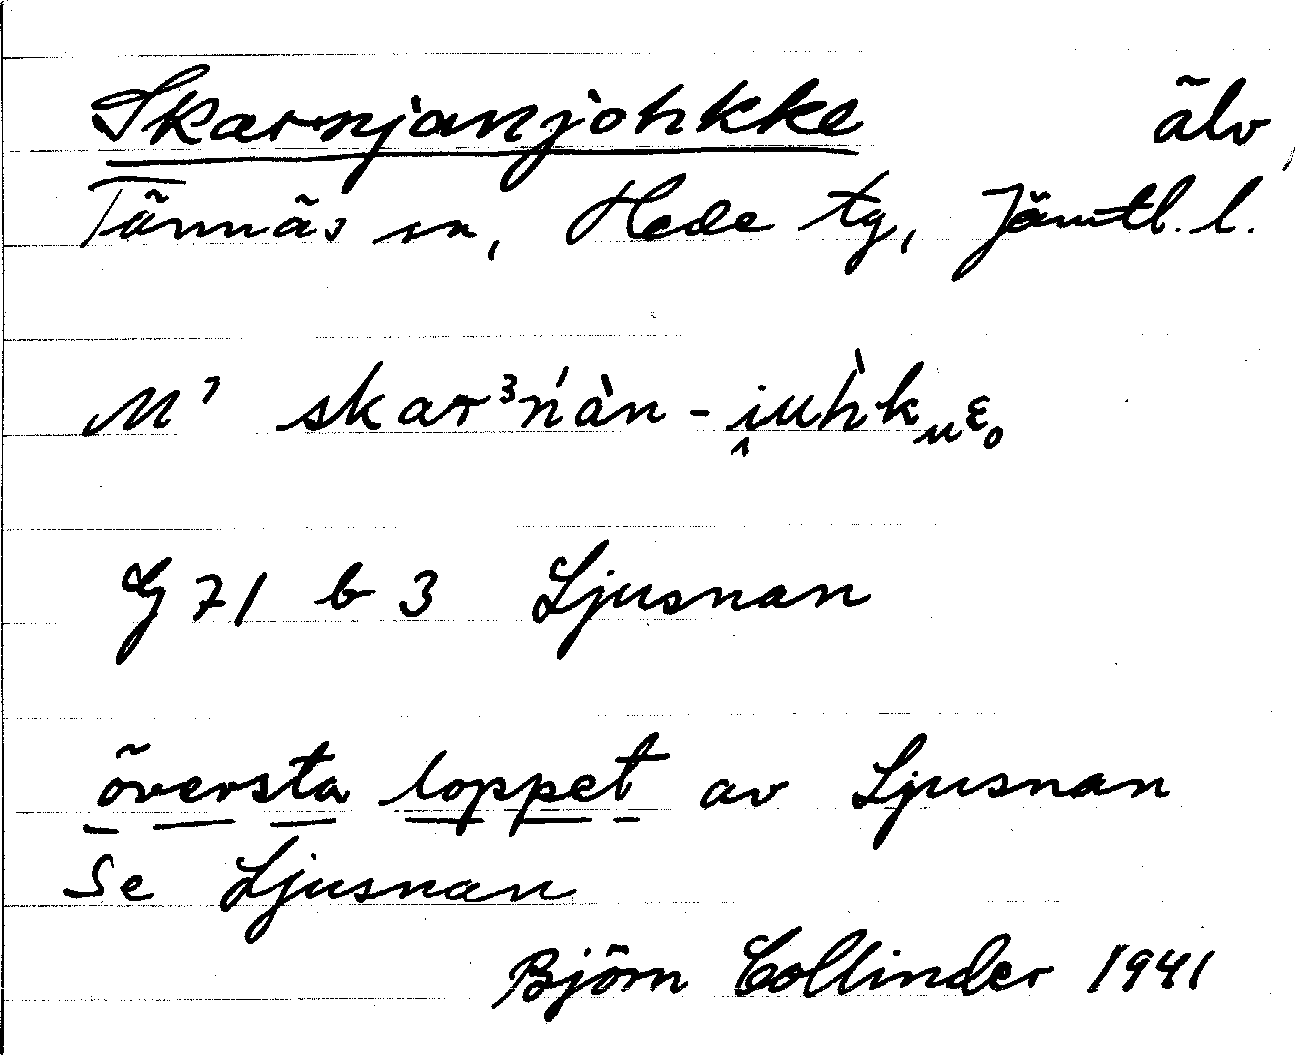 Skarnjanjohkke älv,
Tännäs sn, Hede tg, Jämtl. l.
M¹ skar³ńàn - i̭uh̀kᵤɛ₀
G 71 b 3 Ljusnan
översta loppet av Ljusnan
Se Ljusnan
Björn Collinder 1941